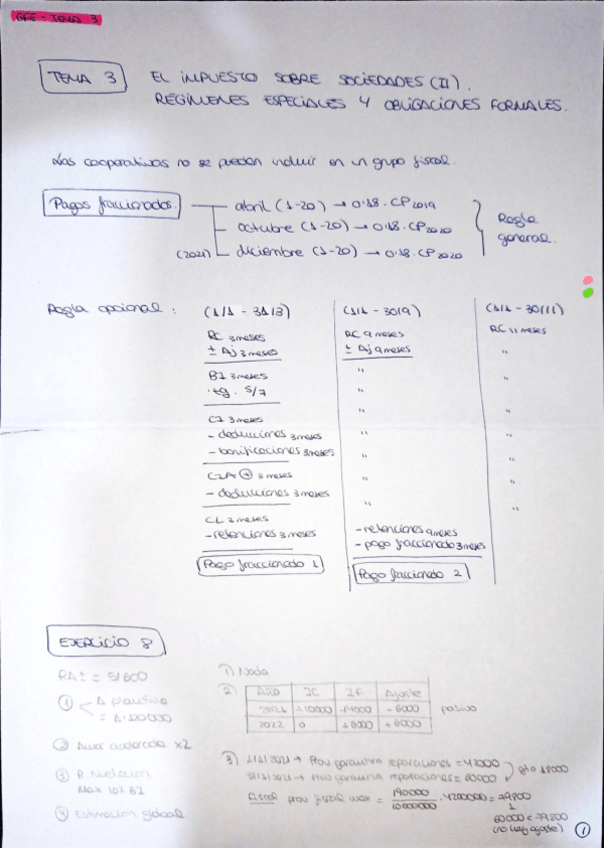 GFE - TEMA 3
TEMA 3 EL IMPUESTO SOBRE SOCIEDADES (II).
REGÍMENES ESPECIALES Y OBLIGACIONES FORMALES.
Las cooperativas no se pueden incluir en un grupo fiscal.
Pagos fraccionados.
abril (1-20) → 0.18. CP 2019
octubre (1-20) → 0.18. CP 2020
(2021) diciembre (1-20) → 0.18. CP 2020
Regla general.
Regla opcional : (1/1 - 31/3) (1/1 - 30/9) (1/1 - 30/11)
RC 3 meses RC 9 meses RC 11 meses
± Aj 3 meses ± Aj 9 meses "
BI 3 meses " "
· tg. 5/7 " "
CI 3 meses " "
- deducciones 3 meses " "
- bonificaciones 3 meses " "
3 meses " "
- deducciones 3 meses " "
CL 3 meses
- retenciones 3 meses - retenciones 9 meses
- pago fraccionado 3 meses
Pago fraccionado 1 Pago fraccionado 2
EJERCICIO 8
RAI = 51600
① Δ plantilla
= Δ·120000
② Amor acelerada x2
③ R. Nivelación
Max 10% BI
④ Estimación global
1) Nada
2) Año IC IF Ajuste
2021 - 6000 pasivo
2022 0 +6000 +6000
3) 1/1/2021 → Prov garantía reparaciones = 42000
31/12/2021 → Prov garantía reparaciones = 60000 gto 18000
Fiscal prov fiscal max = 190000 / 10000000 · 4200000 = 79800
60000 < 79800
(no hay ajuste)
①